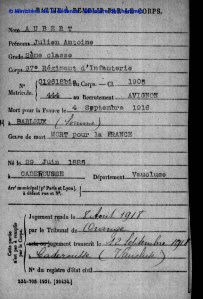 PARTIE À REMPLIR PAR LE CORPS.
Nom AUBERT
Prénoms Julien Antoine
Grade 2ème classe
Corps 37e Régiment d'Infanterie
N° au Corps. — Cl 1905
Matricule. 444 au Recrutement AVIGNON
Mort pour la France le 4 Septembre 1916
à BARLEUX (Somme)
Genre de mort MORT pour la FRANCE
Né le 29 Juin 1885
à CADEROUSSE Département Vaucluse
Arr' municipal (p' Paris et Lyon),
à défaut rue et N°.
Cette partie
n'est pas
à remplir
par le Corps.
Jugement rendu le 8 Août 1918
par le Tribunal de Orange
jugement transcrit le 12 Septembre 1918
à Caderousse (Vaucluse)
N° du registre d'état civil